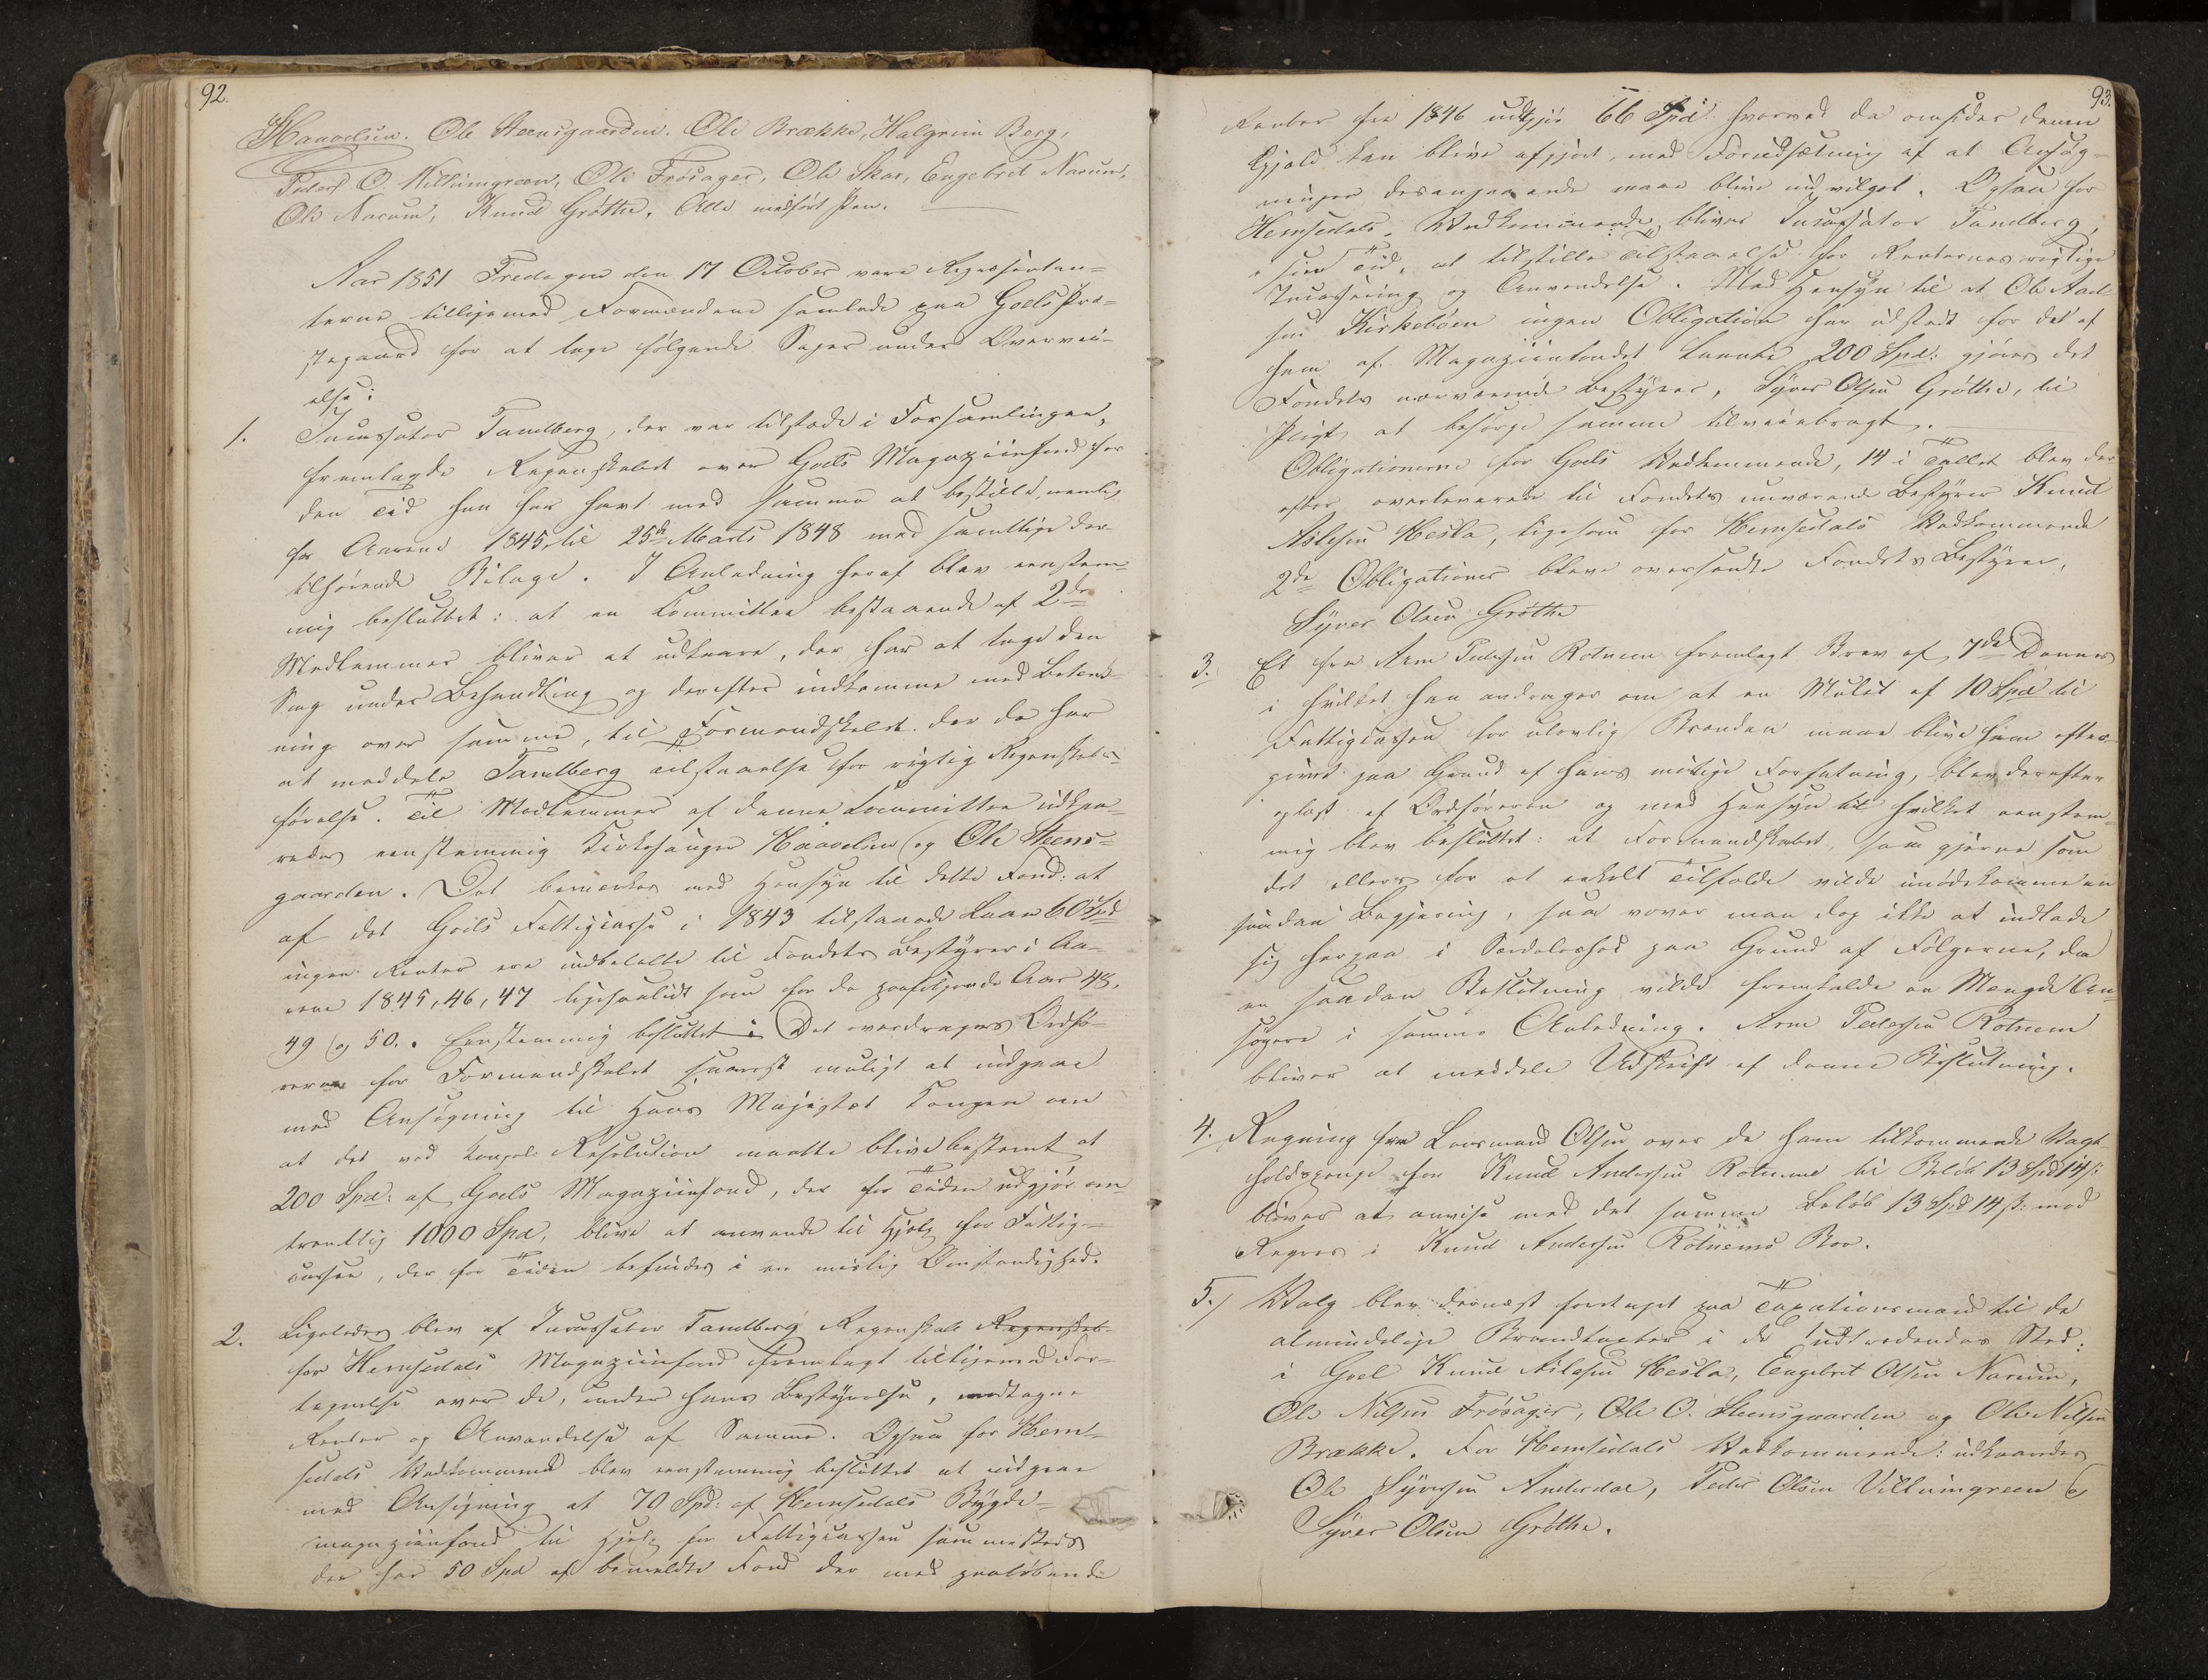 92.
Haavelsen. Ole Steensgaarden. Ole Brække, Halgrim Berg,
Peder O. Villumgreen, Ole Frøsager, Ole Skar, Engebret Narum,
Ole Narum, Knud Grøthe. Alle medført Pen.
Aar 1851 Fredagen den 17 October vare Repræsentan-
terne tilligemed Formændene samlede paa Goels Præ-
stegaard for at tage følgende Sager under Overvei-
else:
1. Incassator Tandberg, der var tilstæde i Forsamlingen,
fremlagde Regnskabet over Goels Magaziinfond for
den Tid han har havt med samme at bestille, nemlig
for Aarene 1845 til 25de Marts 1848 med samtlige der-
tilhørende Bilage. I Anledning heraf blev eenstem-
mig besluttet: at en Committee bestaaende af 2de
Medlemmer bliver at udkaare, der har at tage den
Sag under Behandling og derefter indkomme med Betænk-
ning over samme, til Formandskabet der da har
at meddele Tandberg Tilstaaelse for rigtig Regnskabs-
førelse. Til Medlemmer af denne Committee udkaa-
redes eenstemmig Kirkesanger Haavelsen og Ole Steens-
gaarden. Det bemærkes med Hensyn til dette Fond: at
af det Goels Fattigcasse i 1843 tilstaaede Laan 60 Spd
ingen Renter ere indbetalte til Fondets Bestyrer i Aa-
rene 1845, 46, 47 ligesaalidt som for de paafølgende Aar 48,
49 og 50. Eenstemmig besluttet: Det overdrages Ordfø-
reren for Formandskabet snarest muligt at indgaae
med Ansøgning til Hans Majestæt Kongen om
at det ved Kongel. Resolution maatte blive bestemt at
200 Spd: af Goels Magaziinfond, der for Tiden udgjør om-
trentlig 1000 Spd, blive at anvende til Hjelp for Fattig-
cassen, der for Tiden befindes i en mislig Omstændighed.
2. Ligeledes blev af Incassator Tandberg Regnskab Regnskab-
for Hemsedals Magaziinfond fremlagt tilligemed For-
tegnelse over de, under hans Bestyrelse, modtagne
Renter og Anvendelse af Samme. Ogsaa for Hem-
sedals Vedkommende blev eenstemmig besluttet at indgaae
med Ansøgning at 70 Spd: af Hemsedals Bygde-
magaziinfond til Hjelp for Fattigcassen sammesteds
der har 50 Spd af bemeldte Fond der med paaløbende
93.
Renter fra 1846 udgjør 66 Spd. hvorved da omsider denne
Gjæld kan blive afgjort, med Forudsætning af at Ansøg-
ningen desangaaende maae blive indvilget. Ogsaa for
Hemsedals Vedkommende bliver Incassator Tandberg,
i sin Tid, at tilstille Tilstaaelse for Renternes rigtige
Incassering og Anvendelse. Med Hensyn til at Ole Aad-
sen Kirkebøen ingen Obligation har udstedt for det af
ham af Magaziinfondet laante 200 Spd: gjøres det
Fondets nærværende Bestyrer, Syver Olsen Grøthe, til
Pligt at besørge samme tilveiebragt.
Obligationerne for Goels Vedkommende, 14 i Tallet blev der-
efter overleverede til Fondets nuværende Bestyrer Knud
Aslesen Hesla, ligesom for Hemsedals Vedkommende
2de Obligationer bleve oversendte Fondets Bestyrer,
Syver Olsen Grøthe
3. Et fra Arne Pedersen Rotnem fremlagt Brev af 7de Dennes
i hvilket han andrager om at en Mulct af 10 Spd til
Fattigcassen for ulovlig Brænden maae blive ham efter-
givet paa Grund af hans mislige Forfatning, blev derefter
oplæst af Ordføreren og med Hensyn til hvilket eenstem-
mig blev besluttet: at Formandskabet, saa gjerne som
det ellers for et enkelt Tilfælde vilde imødekomme en
saadan Begjering, saa vover man dog ikke at indlade
sig herpaa i Særdeleshed paa Grund af Følgerne, da
en saadan Beslutning vilde fremkalde en Mængde An-
søgere i samme Anledning. Arne Pedersen Rotnem
bliver at meddele Udskrift af denne Beslutning.
4. Regning fra Lensmand Olsen over de ham tilkommende Vagt-
holdspenge for Knud Andersen Rotnem til Beløb 13 Spd 14 s:
bliver at anvise med det samme Beløb 13 Spd 14 s: med
Regres i Knud Andersen Rotnems Boe.
5. Valg blev dernæst foretaget paa Taxationsmænd til de
almindelige Brandtaxter i de udtrædendes Sted:
i Goel Knud Aslesen Hesla, Engebret Olsen Narum,
Ole Nilsen Frøsager, Ole O. Steensgaarden og Ole Nilsen
Brække. For Hemsedals Vedkommende: udkaaredes
Ole Syversen Anderdal, Peder Olsen Villumgreen &
Syver Olsen Grøthe.